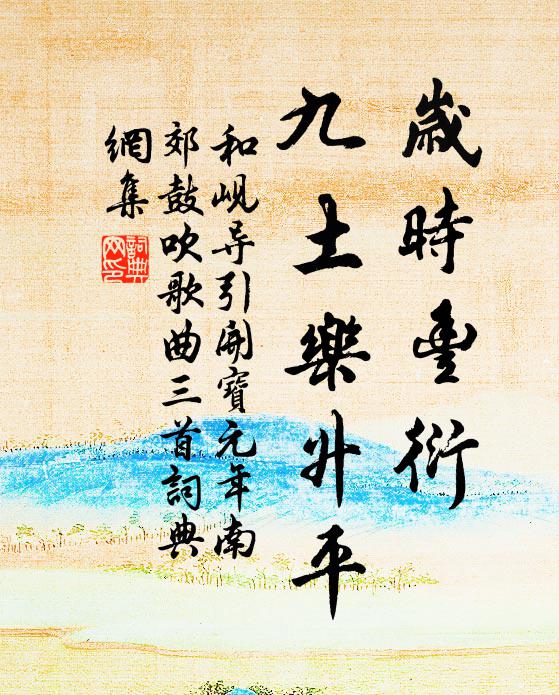 歲時豐衍
九土樂升平
和峴导引開寶元年南
郊鼓吹歌曲三首詞典
網集
詞典
网印